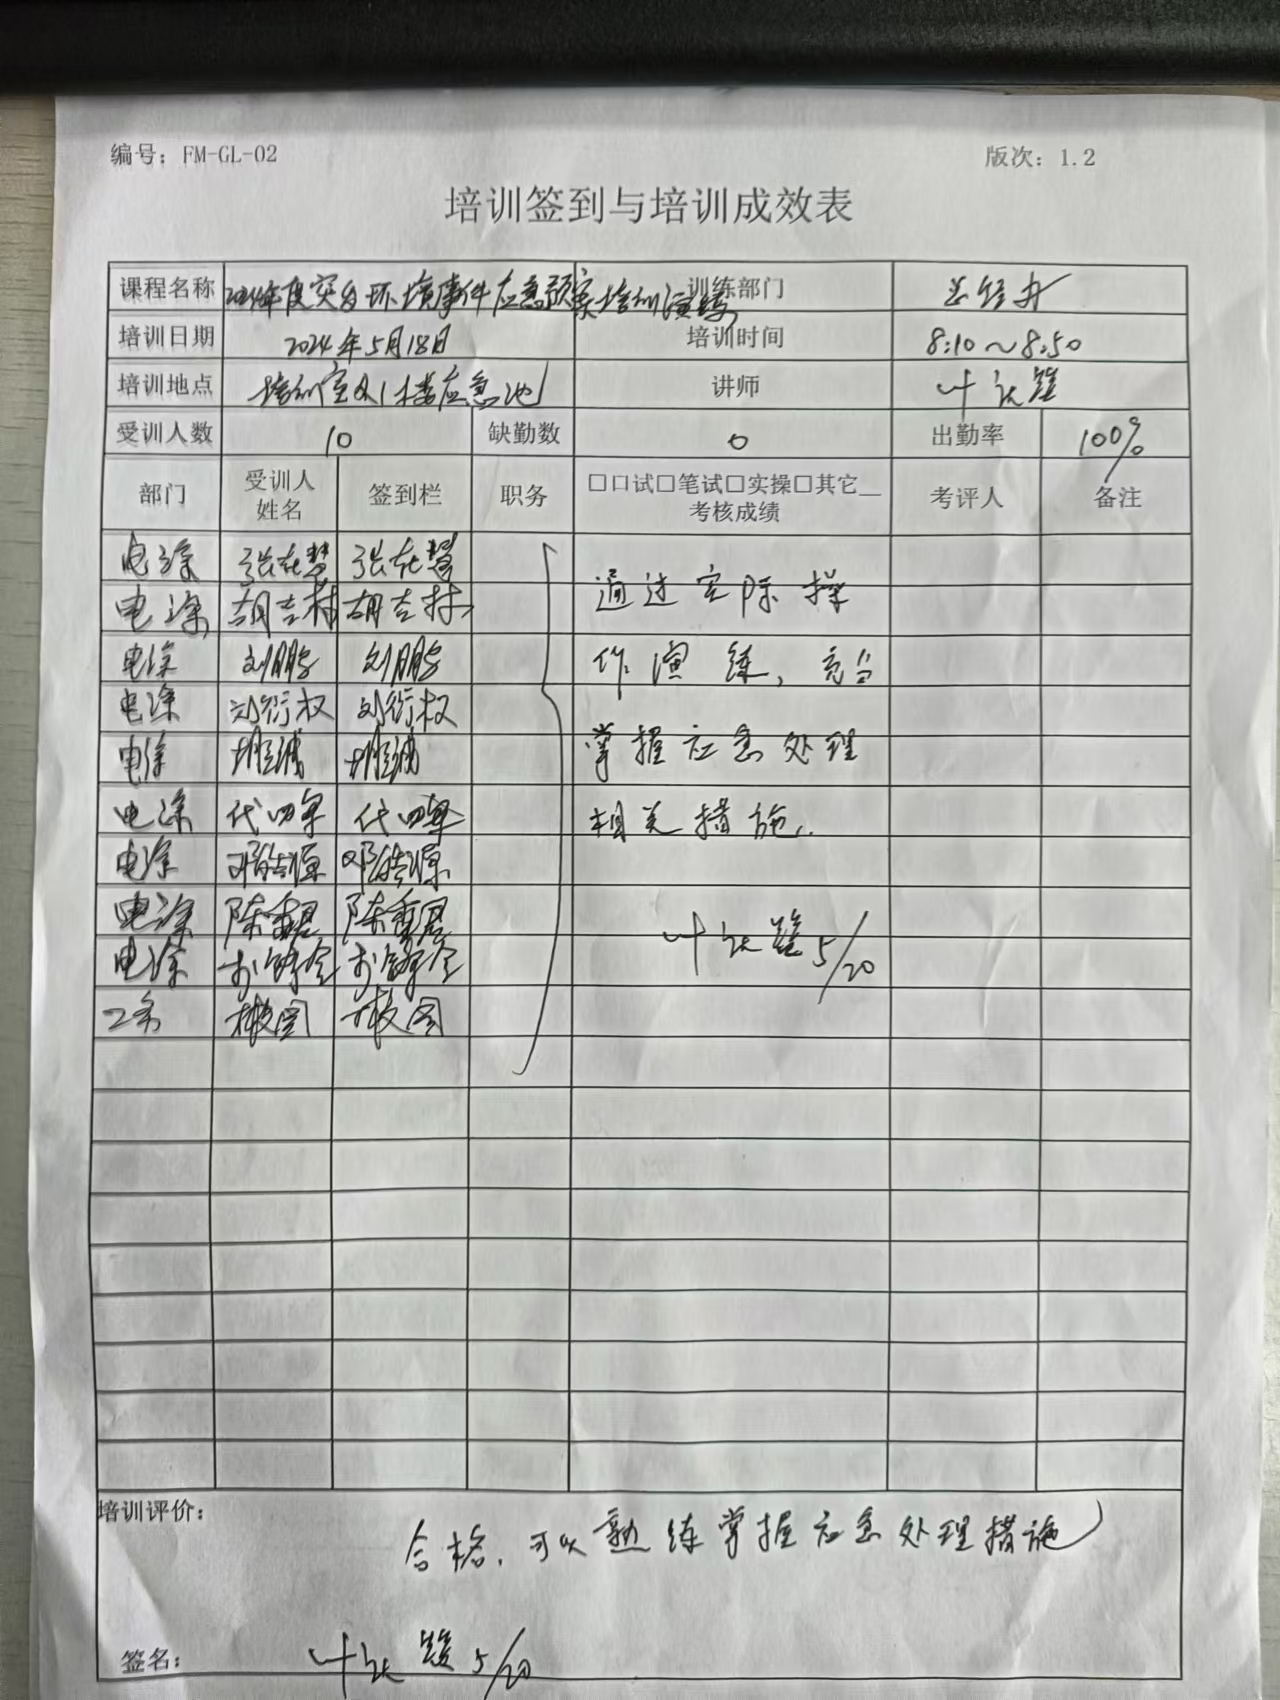 编号：FM-GL-02 版次：1.2
培训签到与培训成效表
课程名称 2024年度突发环境事件应急预案培训演练 训练部门 总经办
培训日期 2024年5月18日 培训时间 8:10～8:50
培训地点 培训室及1楼应急池 讲师 叶
受训人数 10 缺勤数 0 出勤率 100%
部门 受训人姓名 签到栏 职务 □口试□笔试□实操□其它__考核成绩 考评人 备注
电涂 张在慧 张在慧
电涂 胡吉林 胡吉林
电涂 刘鹏 刘鹏
电涂 刘衍权 刘衍权
电涂
电涂 代四军 代四军
电涂 邓皓源 邓皓源
电涂 陈重恩 陈重恩
电涂
工务 图 图
通过实际操
作演练，充分
掌握应急处理
相关措施。
叶 5/20
培训评价：
合格，可以熟练掌握应急处理措施
签名： 叶 5/20